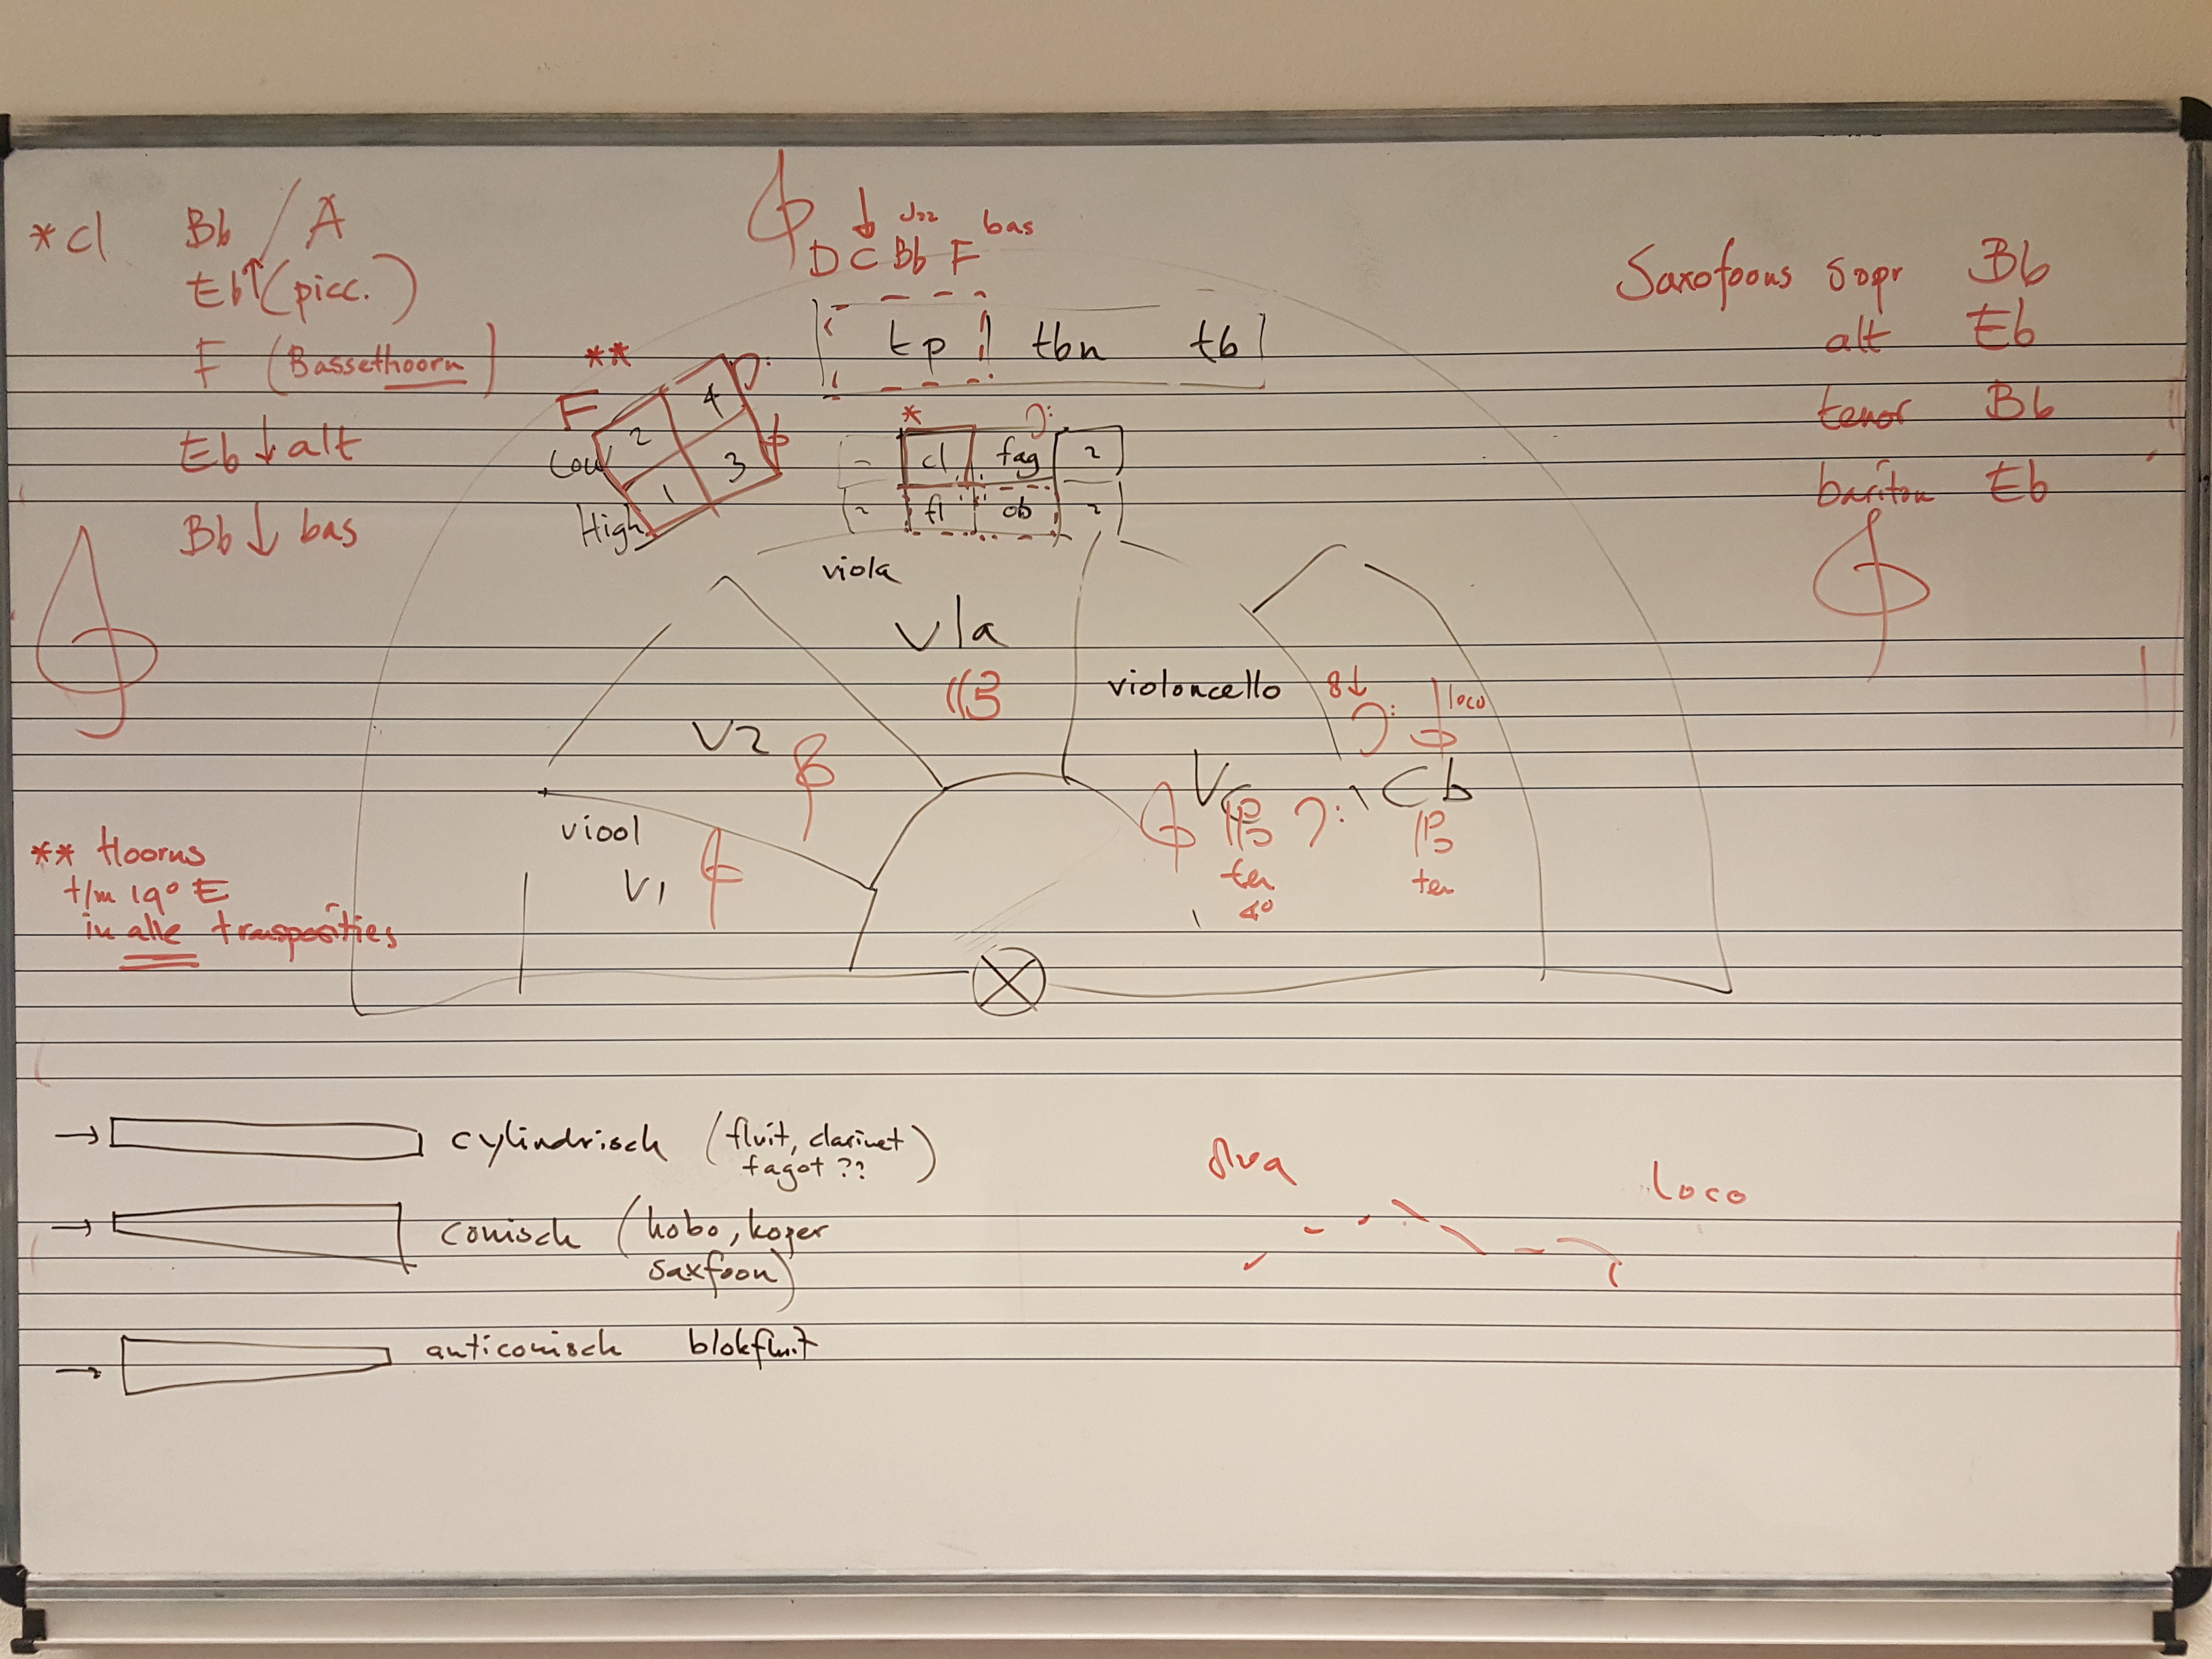 *cl Bb / A
Eb↑ (picc.)
F (Bassethoorn)
Eb↓ alt
Bb↓ bas
D C Bb F bas
tp tbn tb
**
F
2 4
Low
1 3
High
*
cl fag 2
2 fl ob 2
Saxofoons sopr Bb
alt Eb
tenor Bb
bariton Eb
viola
Vla
violoncello
8↓ loco
V2
Vc
Cb
viool
V1
ten
ten
** Hoorns
t/m 19º E
in alle transposities
→ cylindrisch (fluit, clarinet
fagot ??)
→ conisch (hobo, koper
saxfoon)
→ anticonisch blokfluit
8va loco